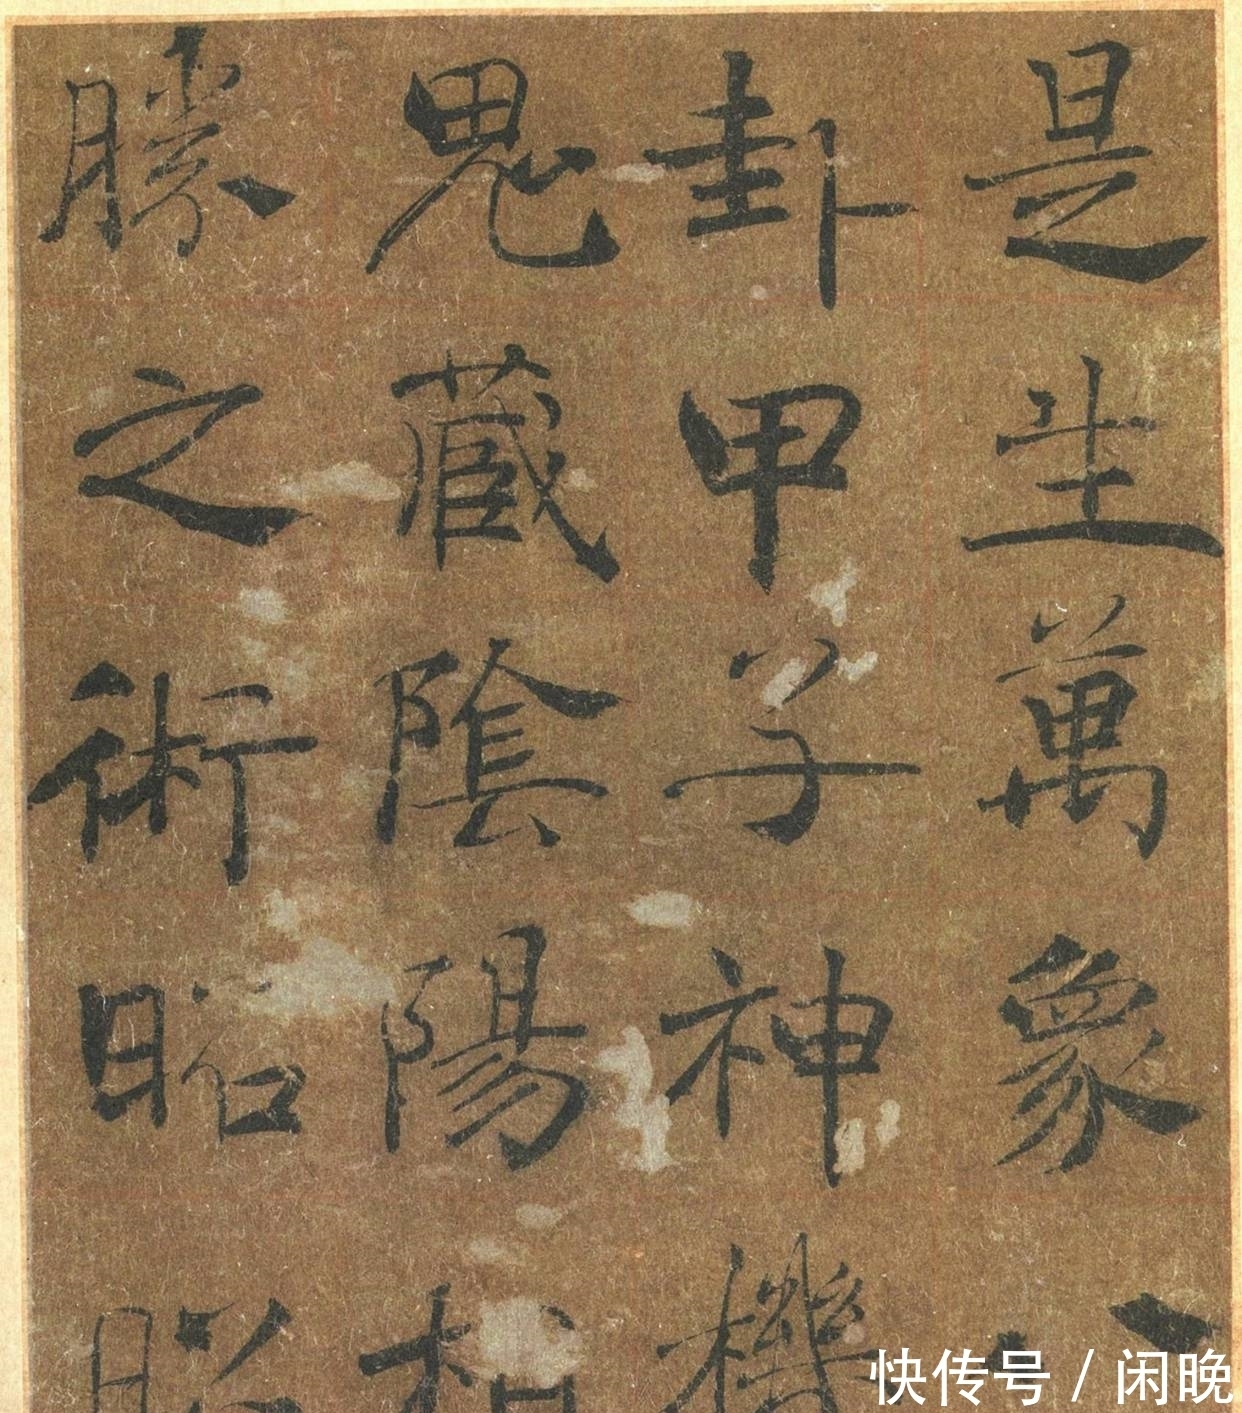 是生萬象八
卦甲子神機
鬼藏陰陽相
勝之術昭昭
快传号 / 闲晚